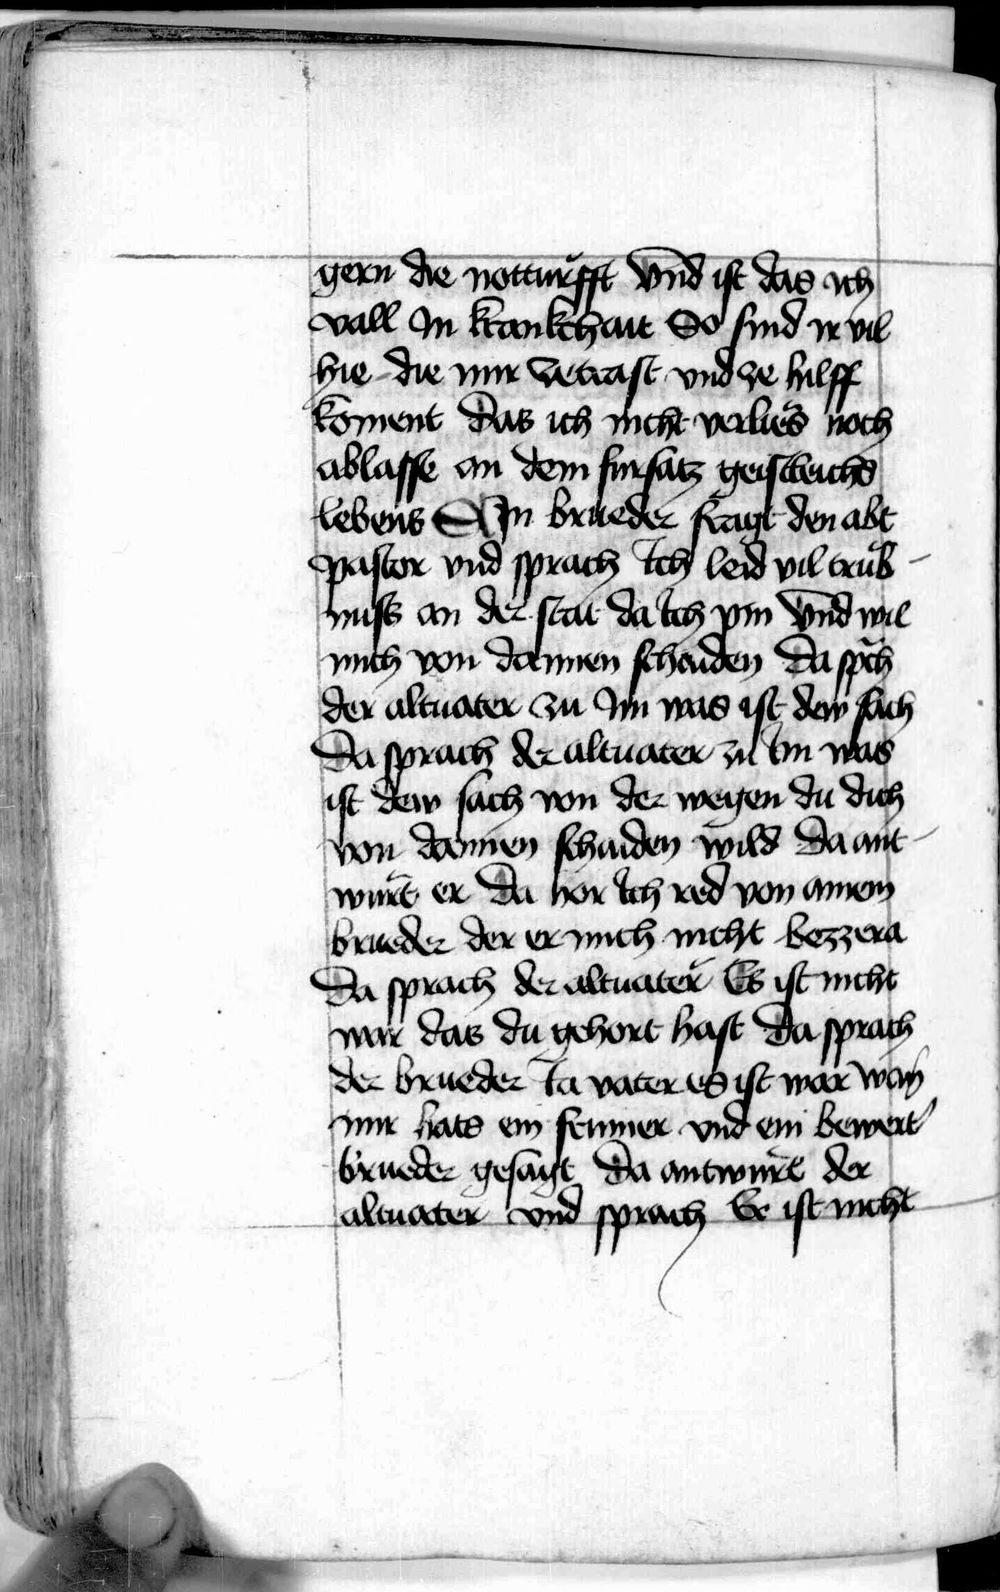 gern die notturfft Vnd ist das ich
vall In krankchait So sind ir vil
hie die mir ze trost vnd ze hilff
koment Das ich nicht verlies noch
ablasse an dem fursatz geistleichs
lebens Ain brueder fragt den abt
pastor vnd sprach Ich leid vil trub
nuss an der stat da Ich pin Vnd wil
mich von dannen schaiden Da sprach
der altuater zu Im was ist dew sach
Da sprach der altuater zu Im was
ist dew sach von der wegen du dich
von dannen schaiden wild Da ant
wurt er Da hor Ich red von ainem
brueder der er mich nicht bezzera
Da sprach der altuater Es ist nicht
war das du gehort hast Da sprach
der brueder Ia vater es ist war wan
mir hats ein frumer vnd ein bewert
brueder gesagt Da antwurt der
altuater vnd sprach Er ist nicht